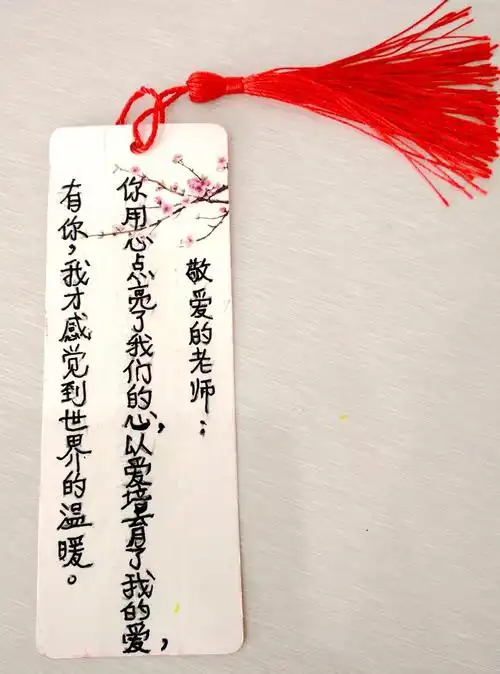 敬爱的老师：
你用心点亮了我们的心，以爱培育了我的爱，
有你，我才感觉到世界的温暖。